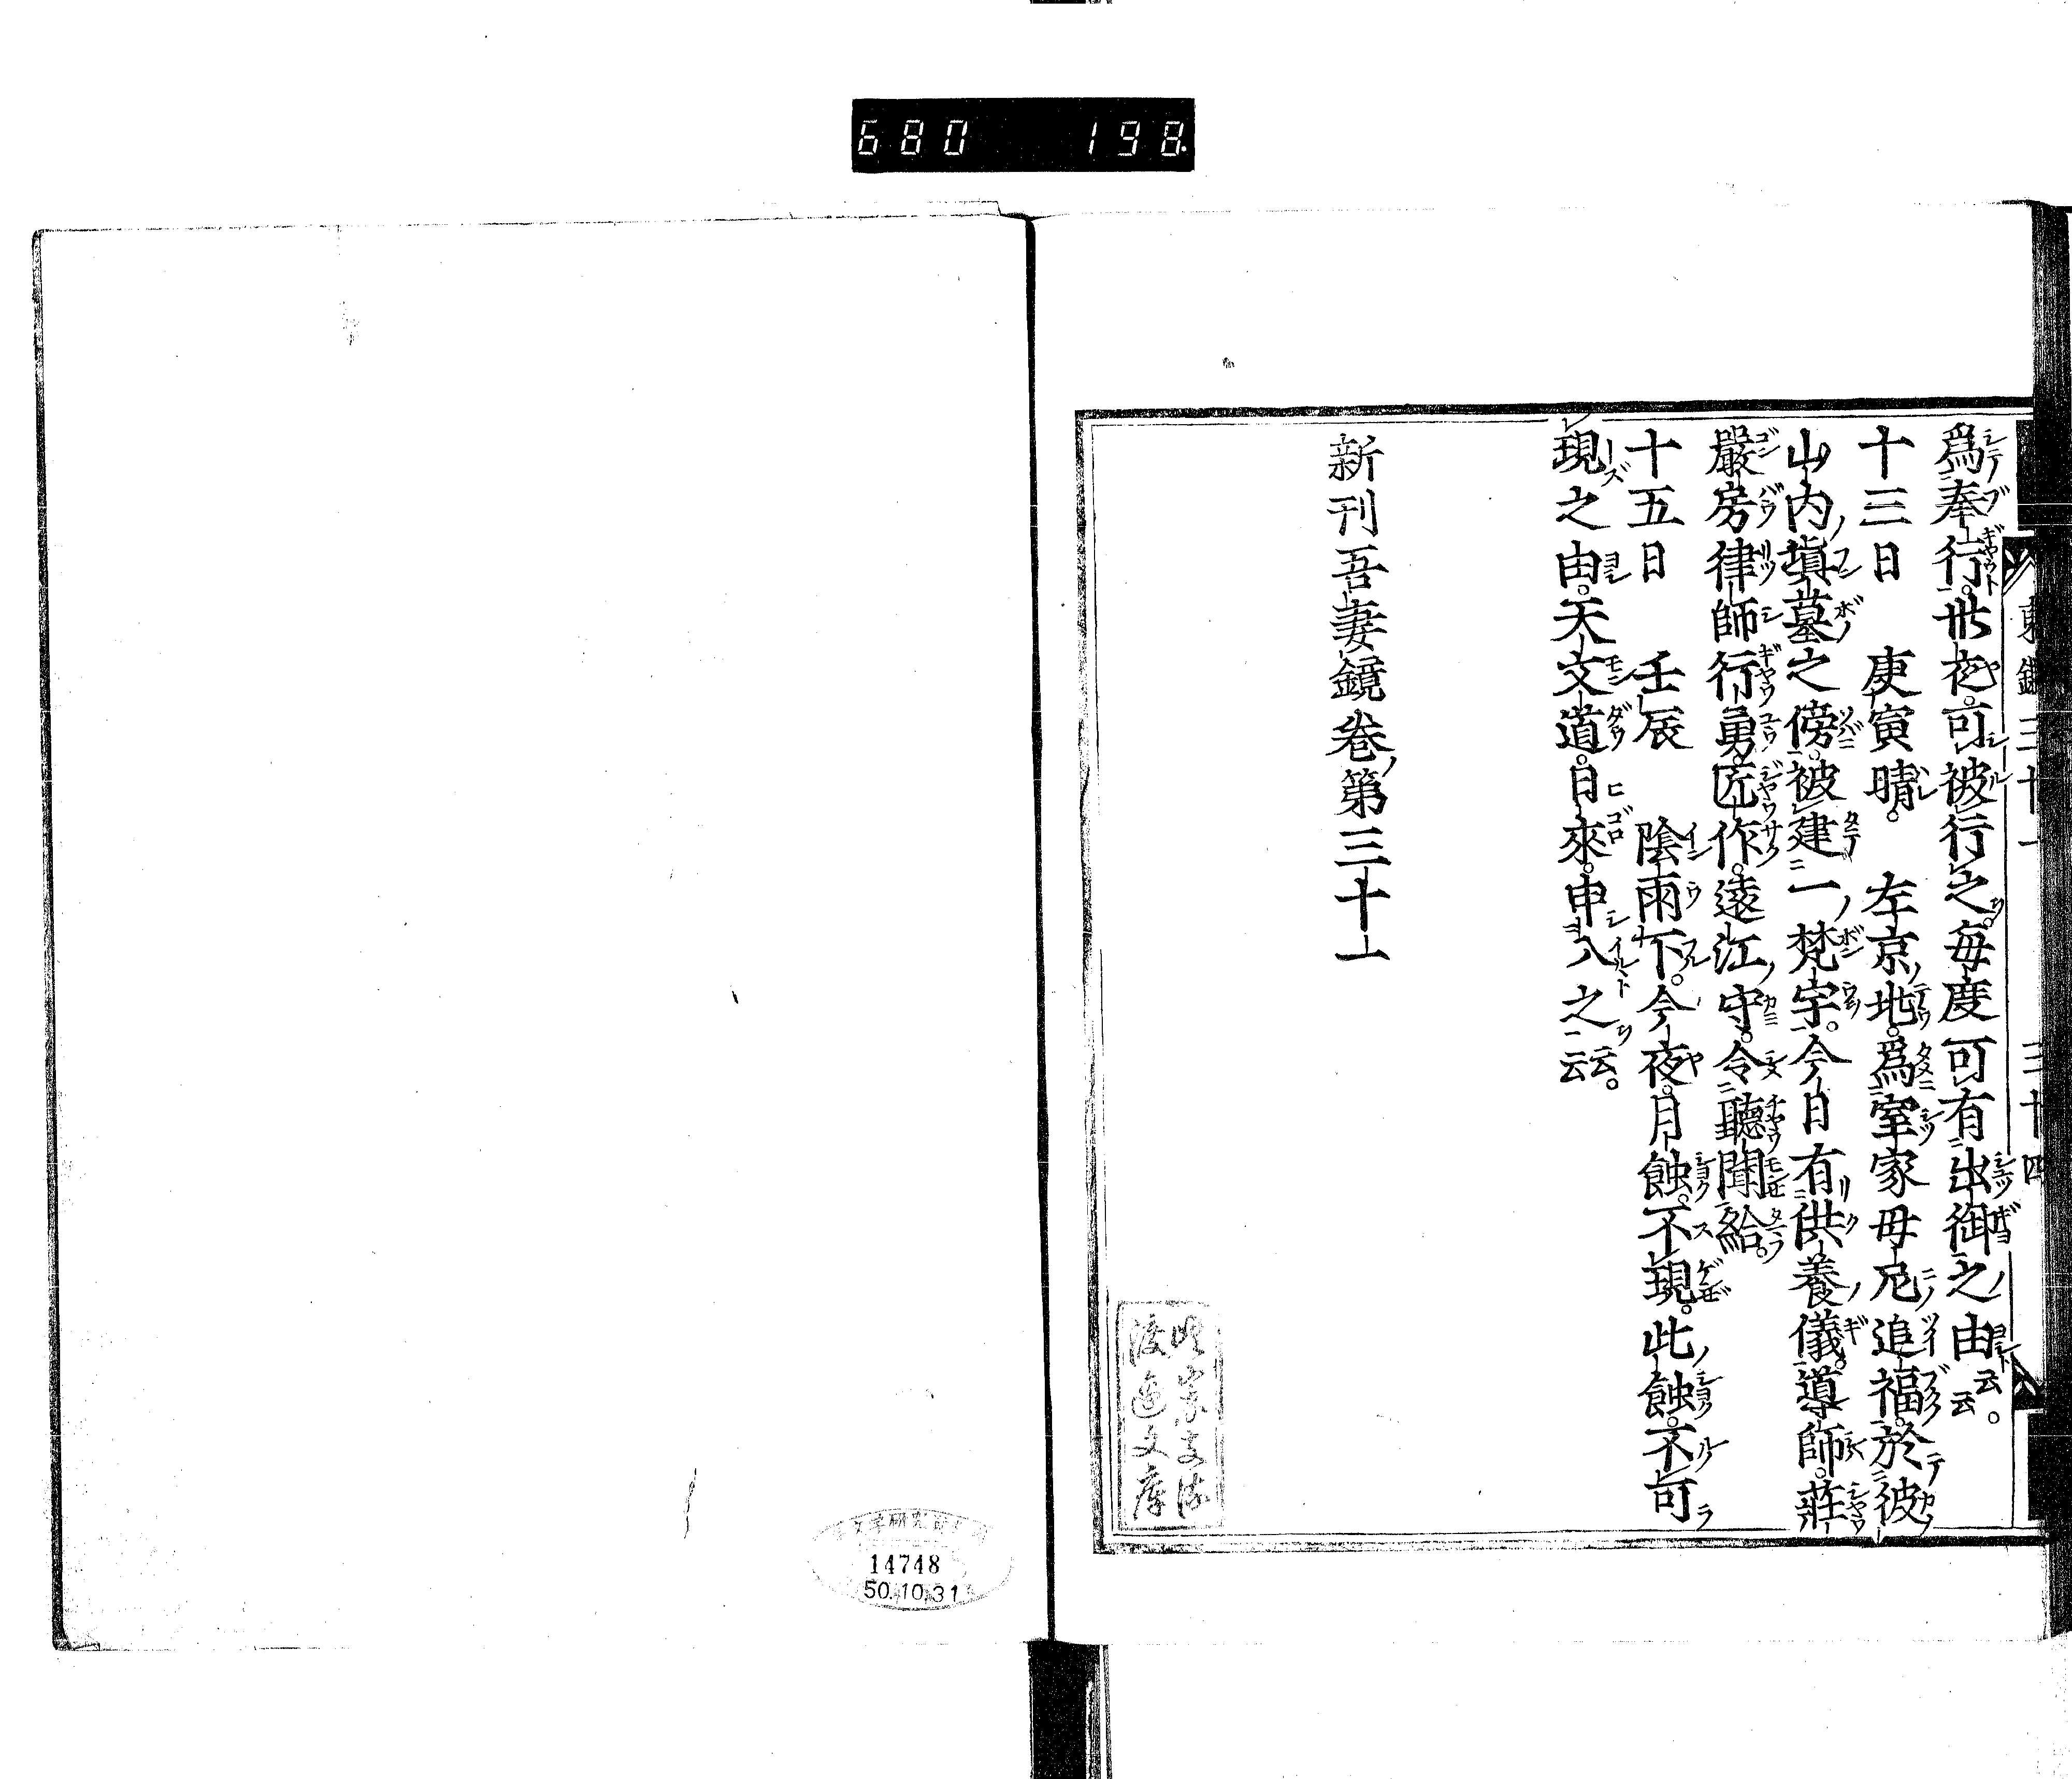 680 198
爲奉行。此夜。可被行之。毎度可有出御之由云云。
十三日 庚寅 晴。 左京地。爲室家母尼追福。於彼
山内墳墓之傍。被建一梵宇。今日有供養儀。導師。莊
嚴房律師行勇。匠作。遠江守。令聽聞給。
十五日 壬辰 陰雨下。今夜。月蝕。不現。此蝕。不可
現之由。天文道。日來。申入之云云。
新刊吾妻鏡卷第三十一
渡邊文庫
14748
50.10.31